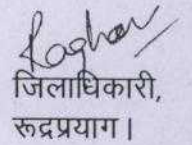 Raghav
जिलाधिकारी,
रूद्रप्रयाग।